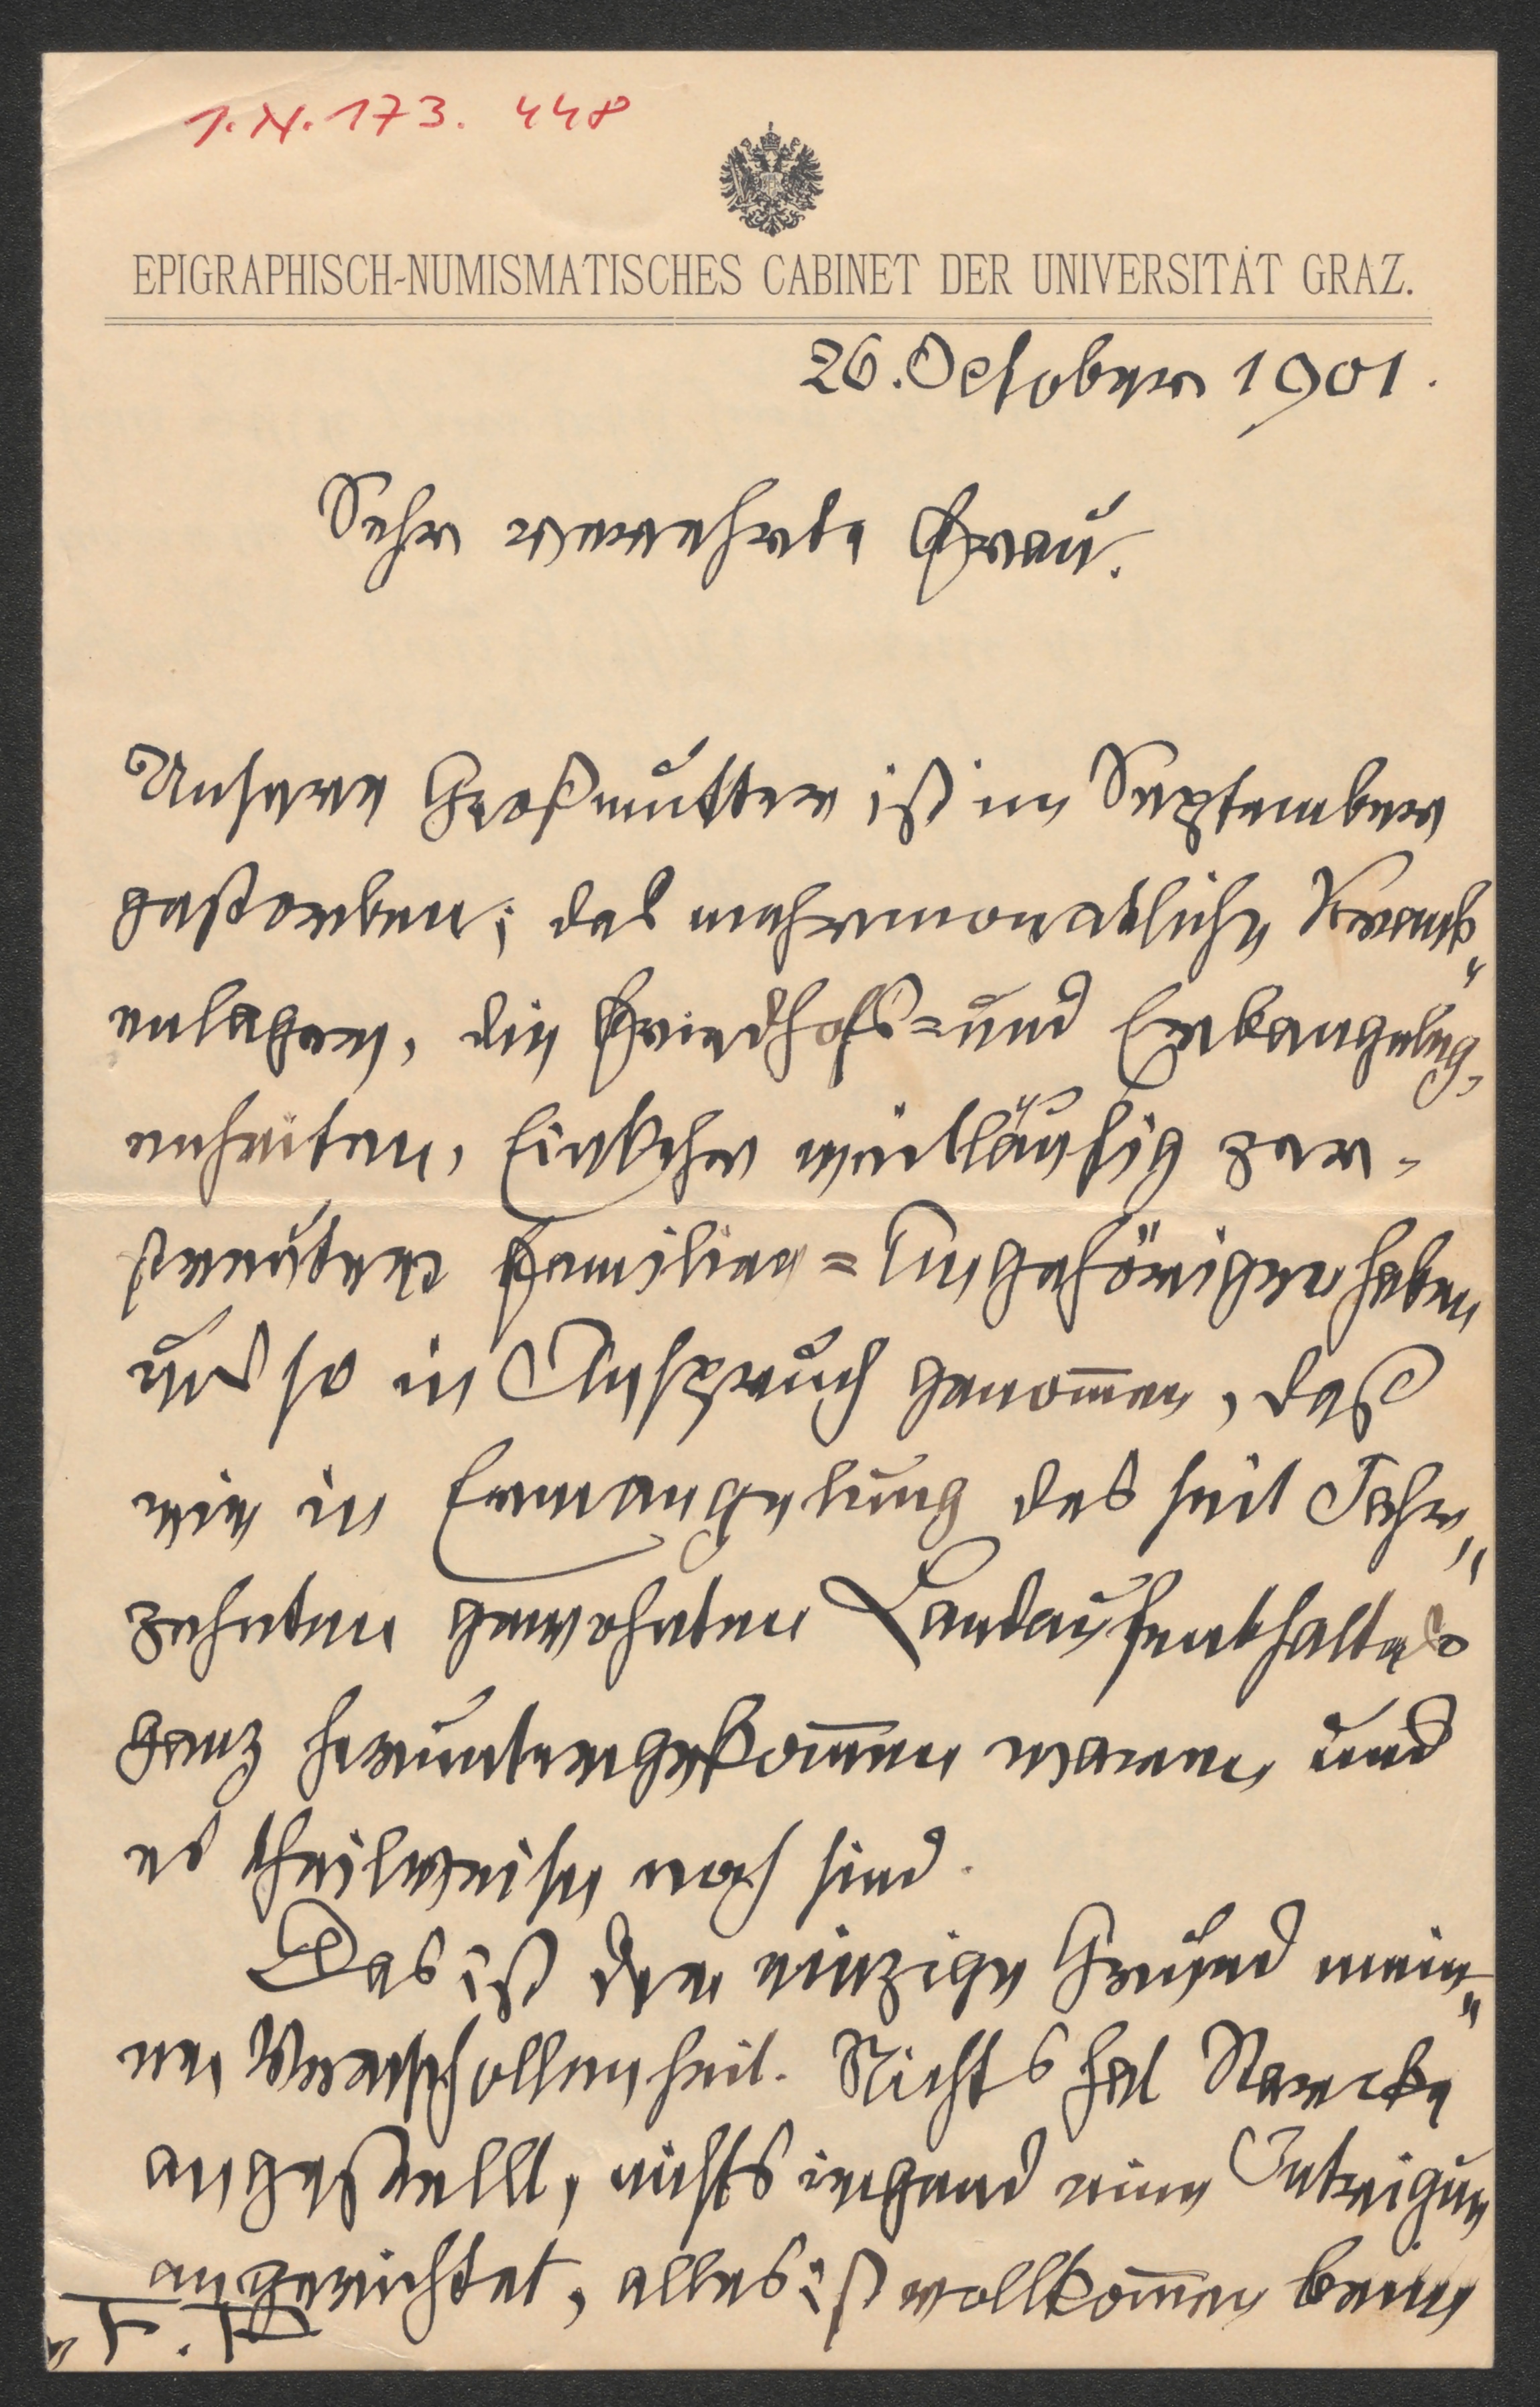 I. N. 173. 448
EPIGRAPHISCH-NUMISMATISCHES CABINET DER UNIVERSITÄT GRAZ.
26. October 1901.
Sehr verehrte Frau.
Unsere Großmutter ist im September
gestorben; das mehrmonatliche Krank„
enlager, die Friedhofs- und Erbangeleg-
enheiten, Einkehr weitläufig zer-
streuter Familien-Angehöriger haben
uns so in Anspruch genom̅en, daß
wir in Ermangelung des seit Jahr„
zehnten gewohnten Landaufenthaltes
ganz heruntergekom̅en waren und
es theilweise noch sind.
Das ist der einzige Grund mein„
er Verschollenheit. Nichts hat Starcke
angestellt, nichts irgend eine Intrigue
angerichtet, alles ist vollkom̅en beim